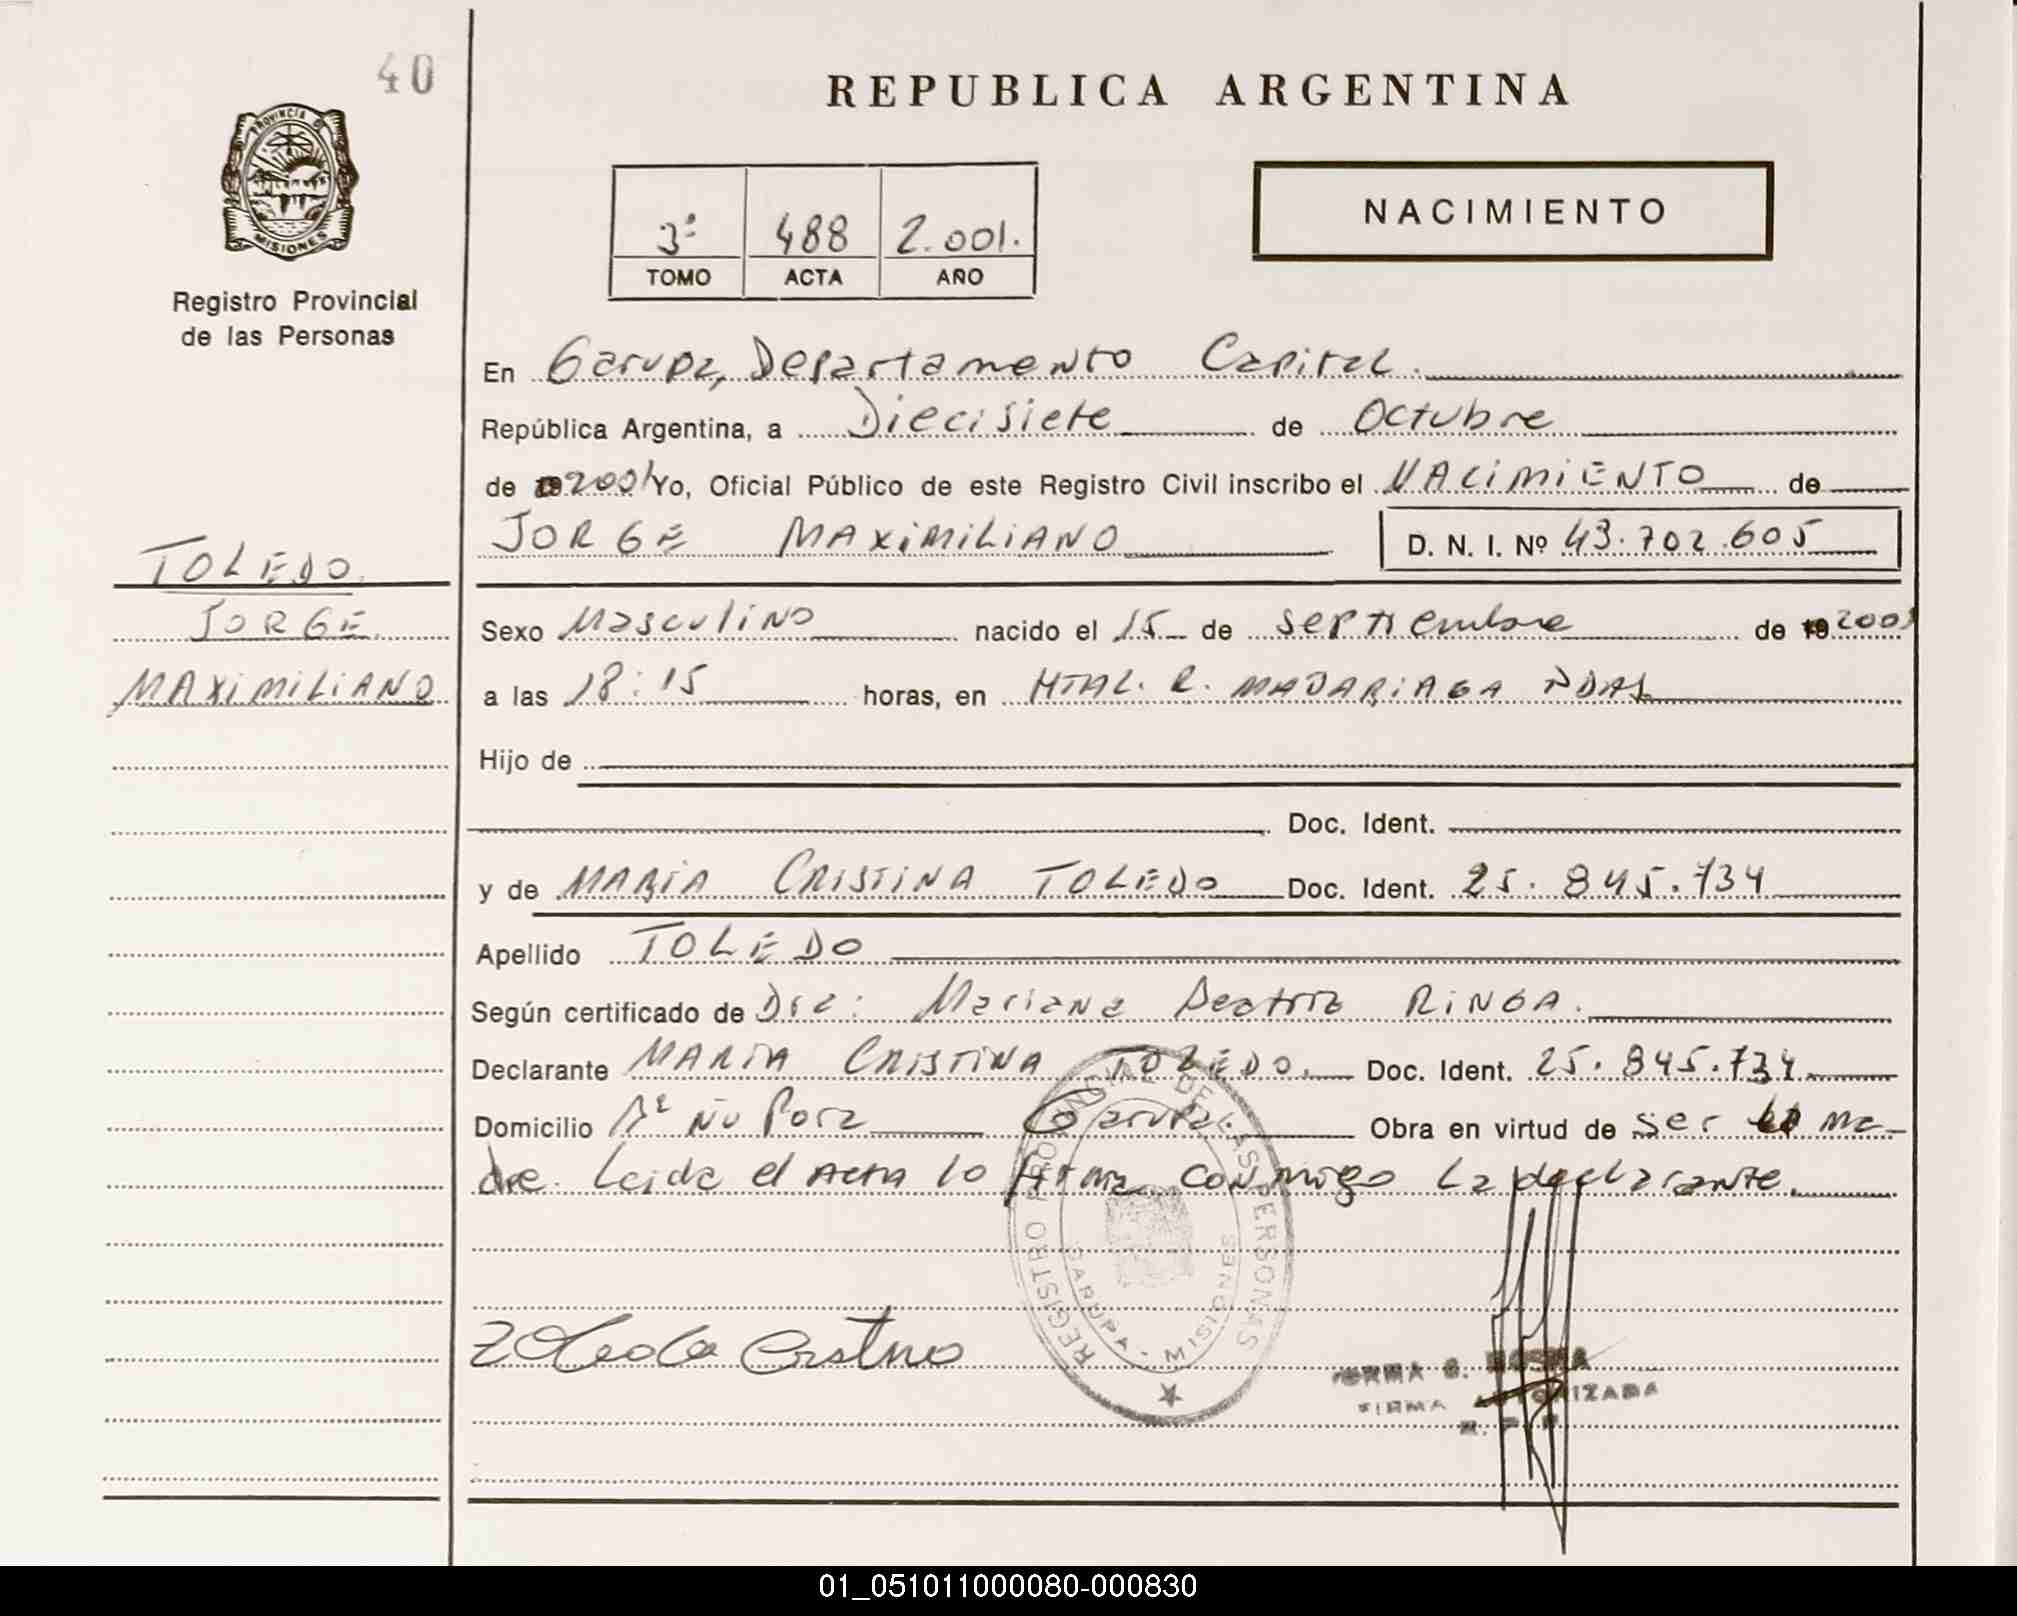 40
REPUBLICA ARGENTINA
PROVINCIA DE
MISIONES
Registro Provincial
de las Personas
3º 488 2.001.
TOMO ACTA AÑO
NACIMIENTO
En Garupa, Departamento Capital.
República Argentina, a Diecisiete de Octubre
de 2001 Yo, Oficial Público de este Registro Civil inscribo el NACIMIENTO de
JORGE MAXIMILIANO D. N. I. Nº 43.702.605
TOLEDO
JORGE
MAXIMILIANO
Sexo Masculino nacido el 15 de septiembre de 19 2001
a las 18:15 horas, en HTAL. R. MADARIAGA PDAS
Hijo de
Doc. Ident.
y de MARIA CRISTINA TOLEDO Doc. Ident. 25.845.734
Apellido TOLEDO
Según certificado de Dra: Mariana Beatriz RINGA.
Declarante MARIA CRISTINA TOLEDO. Doc. Ident. 25.845.734
Domicilio Bº Ñu Pora Garupa. Obra en virtud de ser la ma-
dre. Leida el Acta lo firma conmigo La declarante.
REGISTRO PROVINCIAL DE LAS PERSONAS
GARUPA - MISIONES
FIRMA AUTORIZADA
01_051011000080-000830